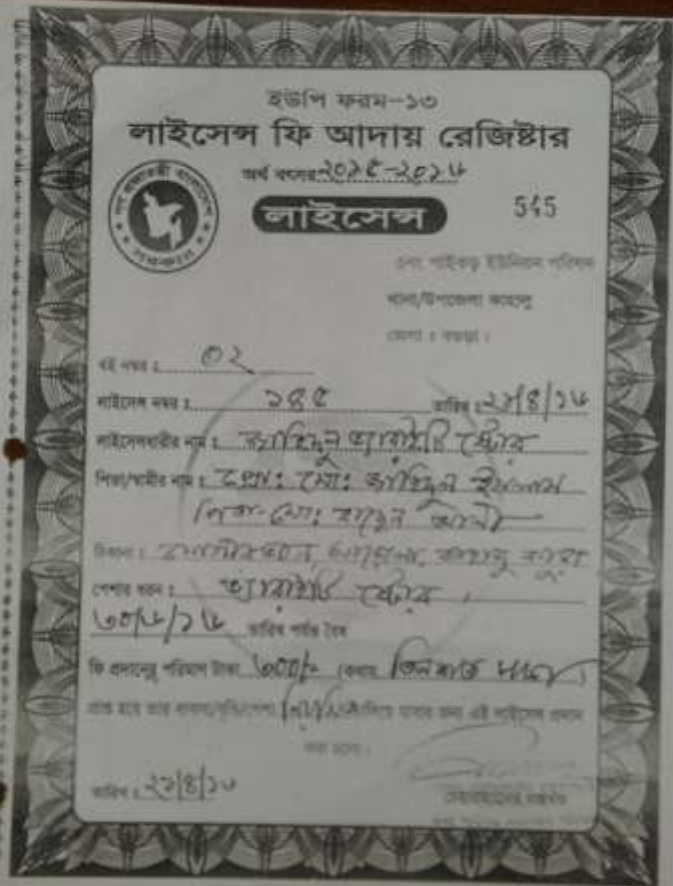 ইউপি ফরম-১৩
লাইসেন্স ফি আদায় রেজিষ্টার
অর্থ বৎসর ২০১৫-২০১৬
লাইসেন্স
545
পাইকড় ইউনিয়ন পরিষদ
থানা/উপজেলা কাহালু
জেলা : বগুড়া ।
বই নম্বর : ০২
লাইসেন্স নম্বর : ১৪৫ তারিখ : ২১/৪/১৬
লাইসেন্সধারীর নাম : ভ্যারাইটি ষ্টোর
পিতা/স্বামীর নাম : প্রোঃ মোঃ ইসলাম
পিতা-মোঃ আলী
ঠিকানা : কাহালু বগুড়া
পেশার ধরন : ভ্যারাইটি ষ্টোর ।
৩০/৬/১৬ তারিখ পর্যন্ত বৈধ
ফি প্রদানের পরিমান টাকা ৩০০/- কথায় তিনশত
প্রাপ্ত হয়ে তার ব্যবসা/বৃত্তি/পেশা চালিয়ে যাবার জন্য এই লাইসেন্স প্রদান
করা হলো ।
তারিখ : ২১/৪/১৬
চেয়ারম্যানের স্বাক্ষর